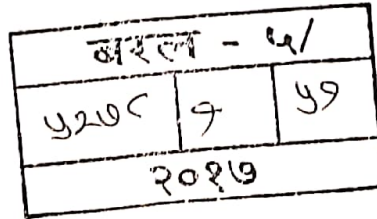 बरल - ५/
५२७८ १ ५१
२०१७